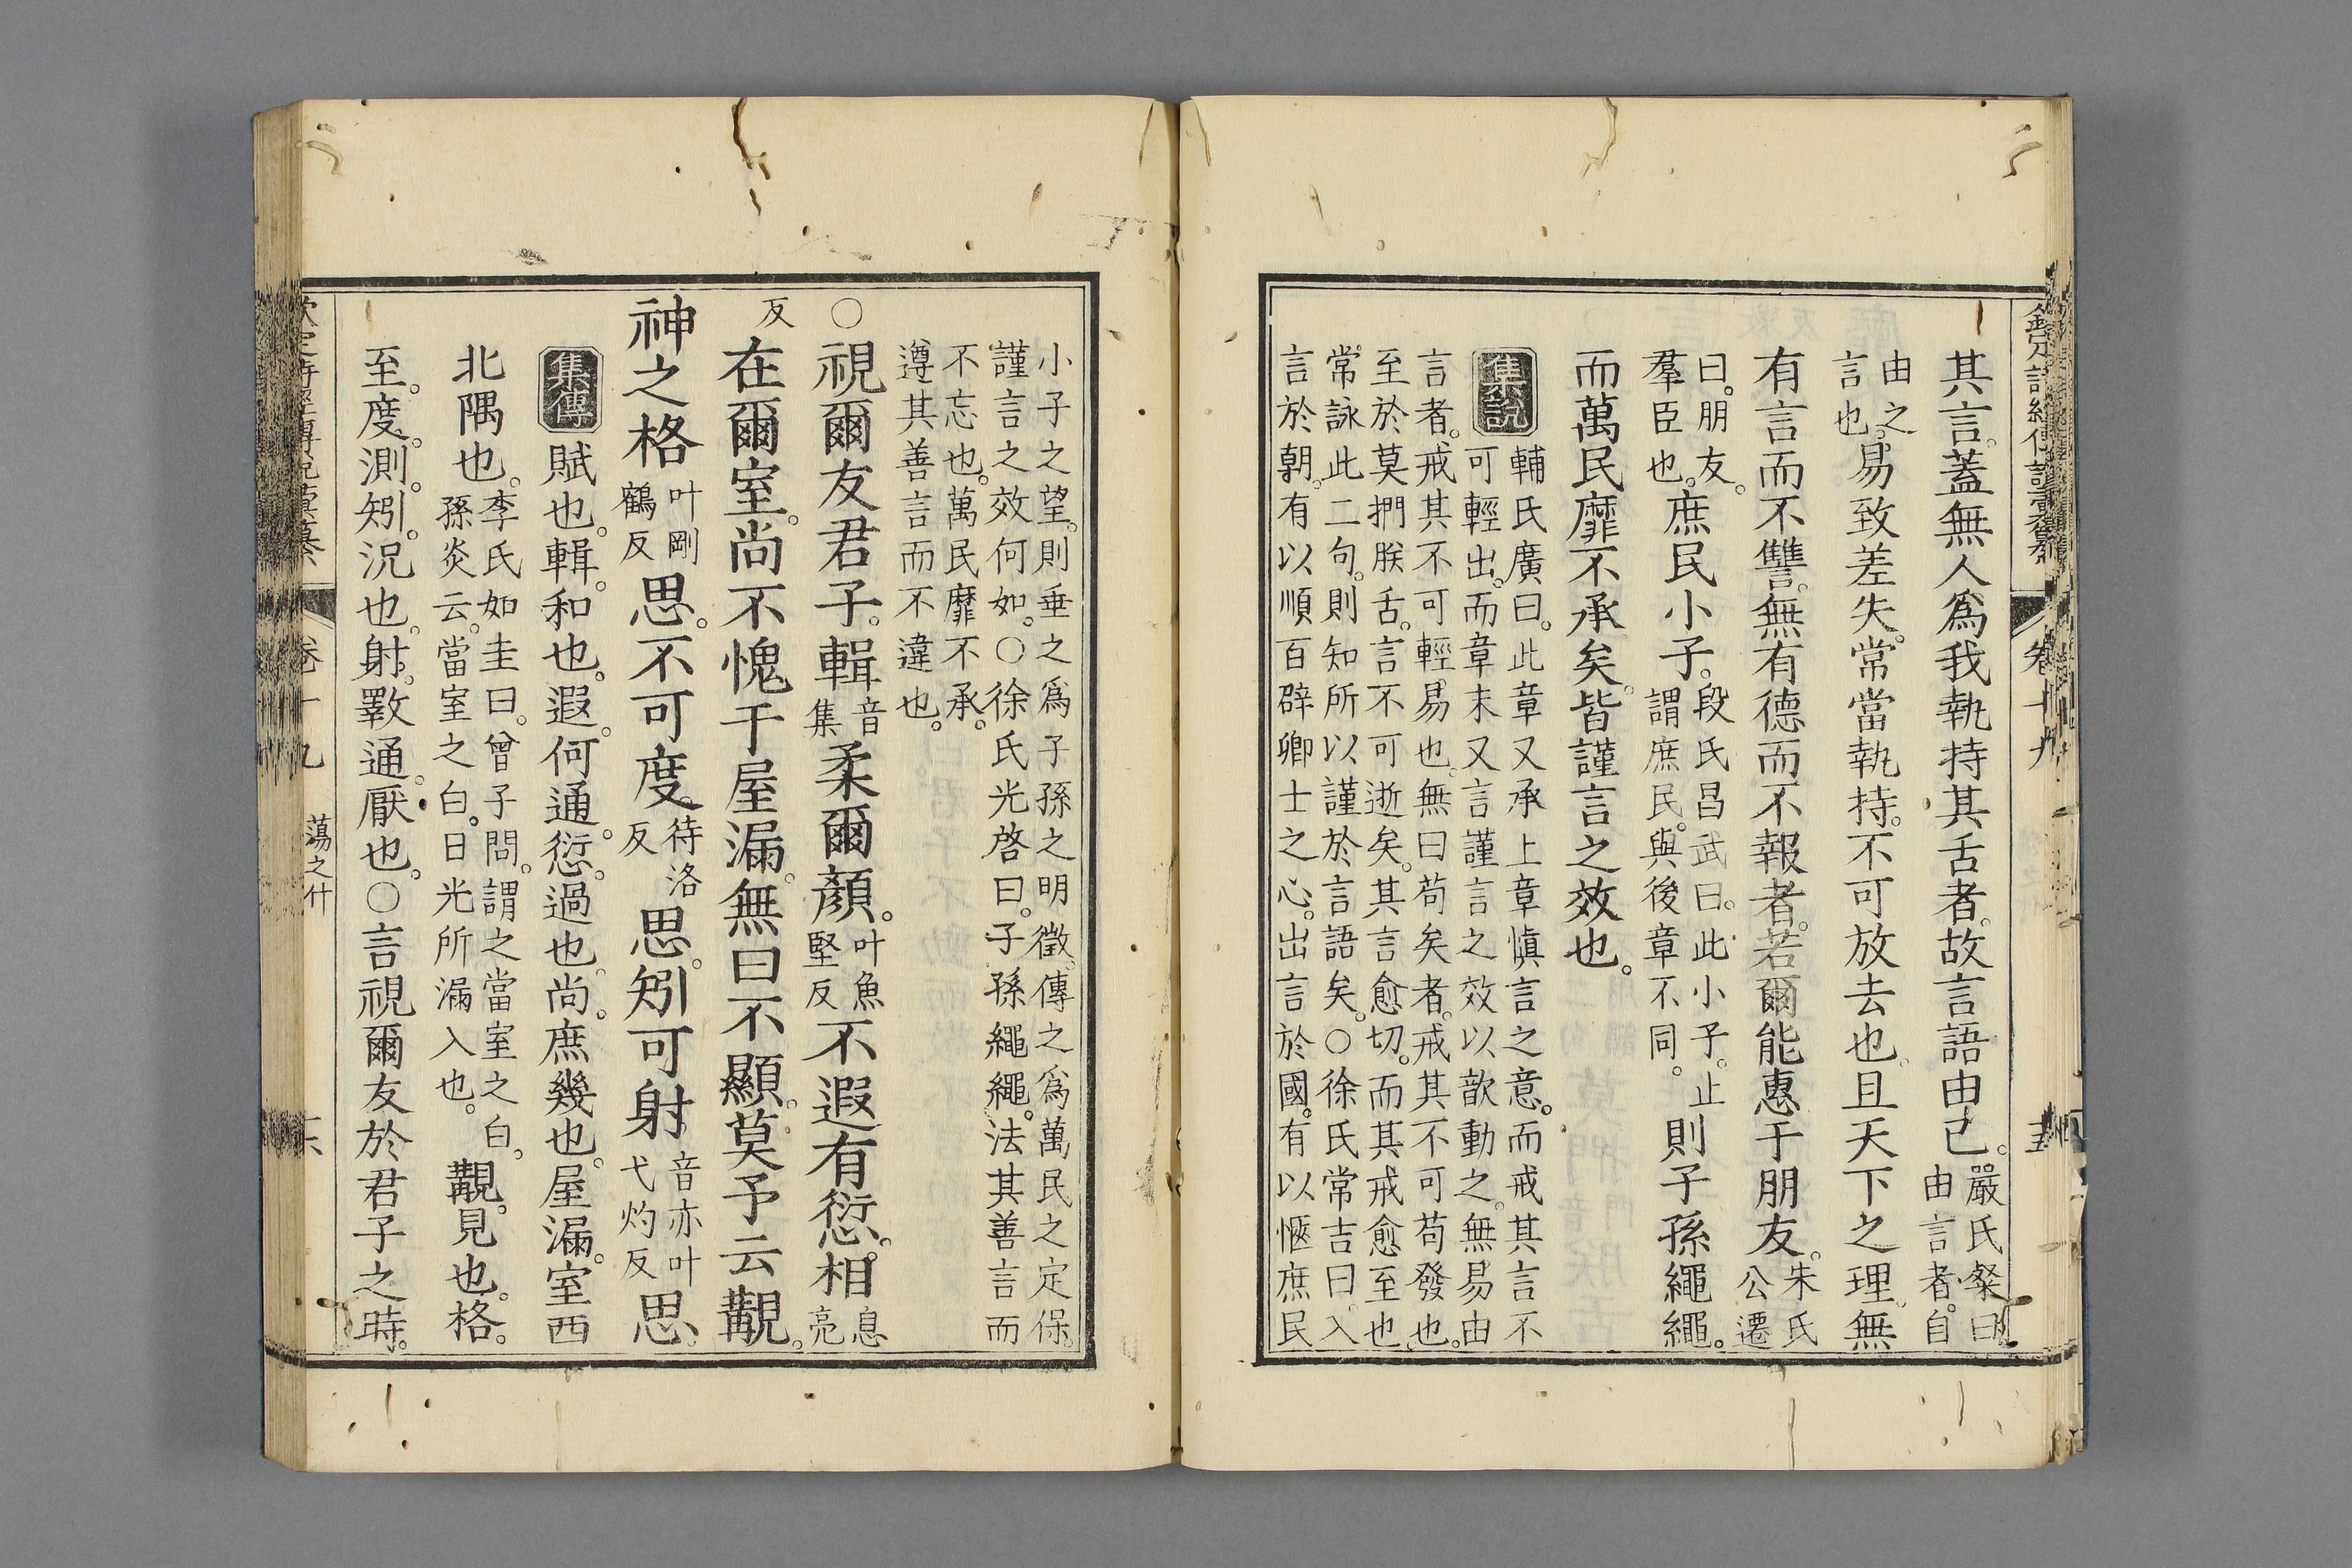 其言。蓋無人為我執持其舌者。故言語由己。嚴氏粲曰。由言者。自
由之言也。易致差失。常當執持。不可放去也。且天下之理。無
有言而不讐。無有德而不報者。若爾能惠于朋友。朱氏公遷
曰。朋友。羣臣也。庶民小子。段氏昌武曰。此小子。止謂庶民。與後章不同。則子孫繩繩。
而萬民靡不承矣。皆謹言之效也。
集說
輔氏廣曰。此章又承上章愼言之意。而戒其言不
可輕出。而章末又言謹言之效以歆動之。無易由
言者。戒其不可輕易也。無曰苟矣者。戒其不可苟發也。
至於莫捫朕舌。言不可逝矣。其言愈切。而其戒愈至也。
常詠此二句。則知所以謹於言語矣。○徐氏常吉曰。入
言於朝。有以順百辟卿士之心。出言於國。有以愜庶民
小子之望。則垂之爲子孫之明徵。傳之爲萬民之定保。
謹言之效何如。○徐氏光啓曰。子孫繩繩。法其善言而
不忘也。萬民靡不承。
遵其善言而不違也。
○視爾友君子。輯音集柔爾顏。叶魚堅反不遐有愆。相息亮
反在爾室。尚不愧于屋漏。無曰不顯。莫予云覯。
神之格叶剛鶴反思。不可度待洛反思。矧可射音亦叶弋灼反思。
集傳
賦也。輯。和也。遐。何通。愆。過也。尚。庶幾也。屋漏。室西
北隅也。李氏如圭曰。曾子問。謂之當室之白。孫炎云。當室之白。日光所漏入也。覯。見也。格。
至。度。測。矧。況也。射。斁通。厭也。○言視爾友於君子之時。
卷十九
蕩之什